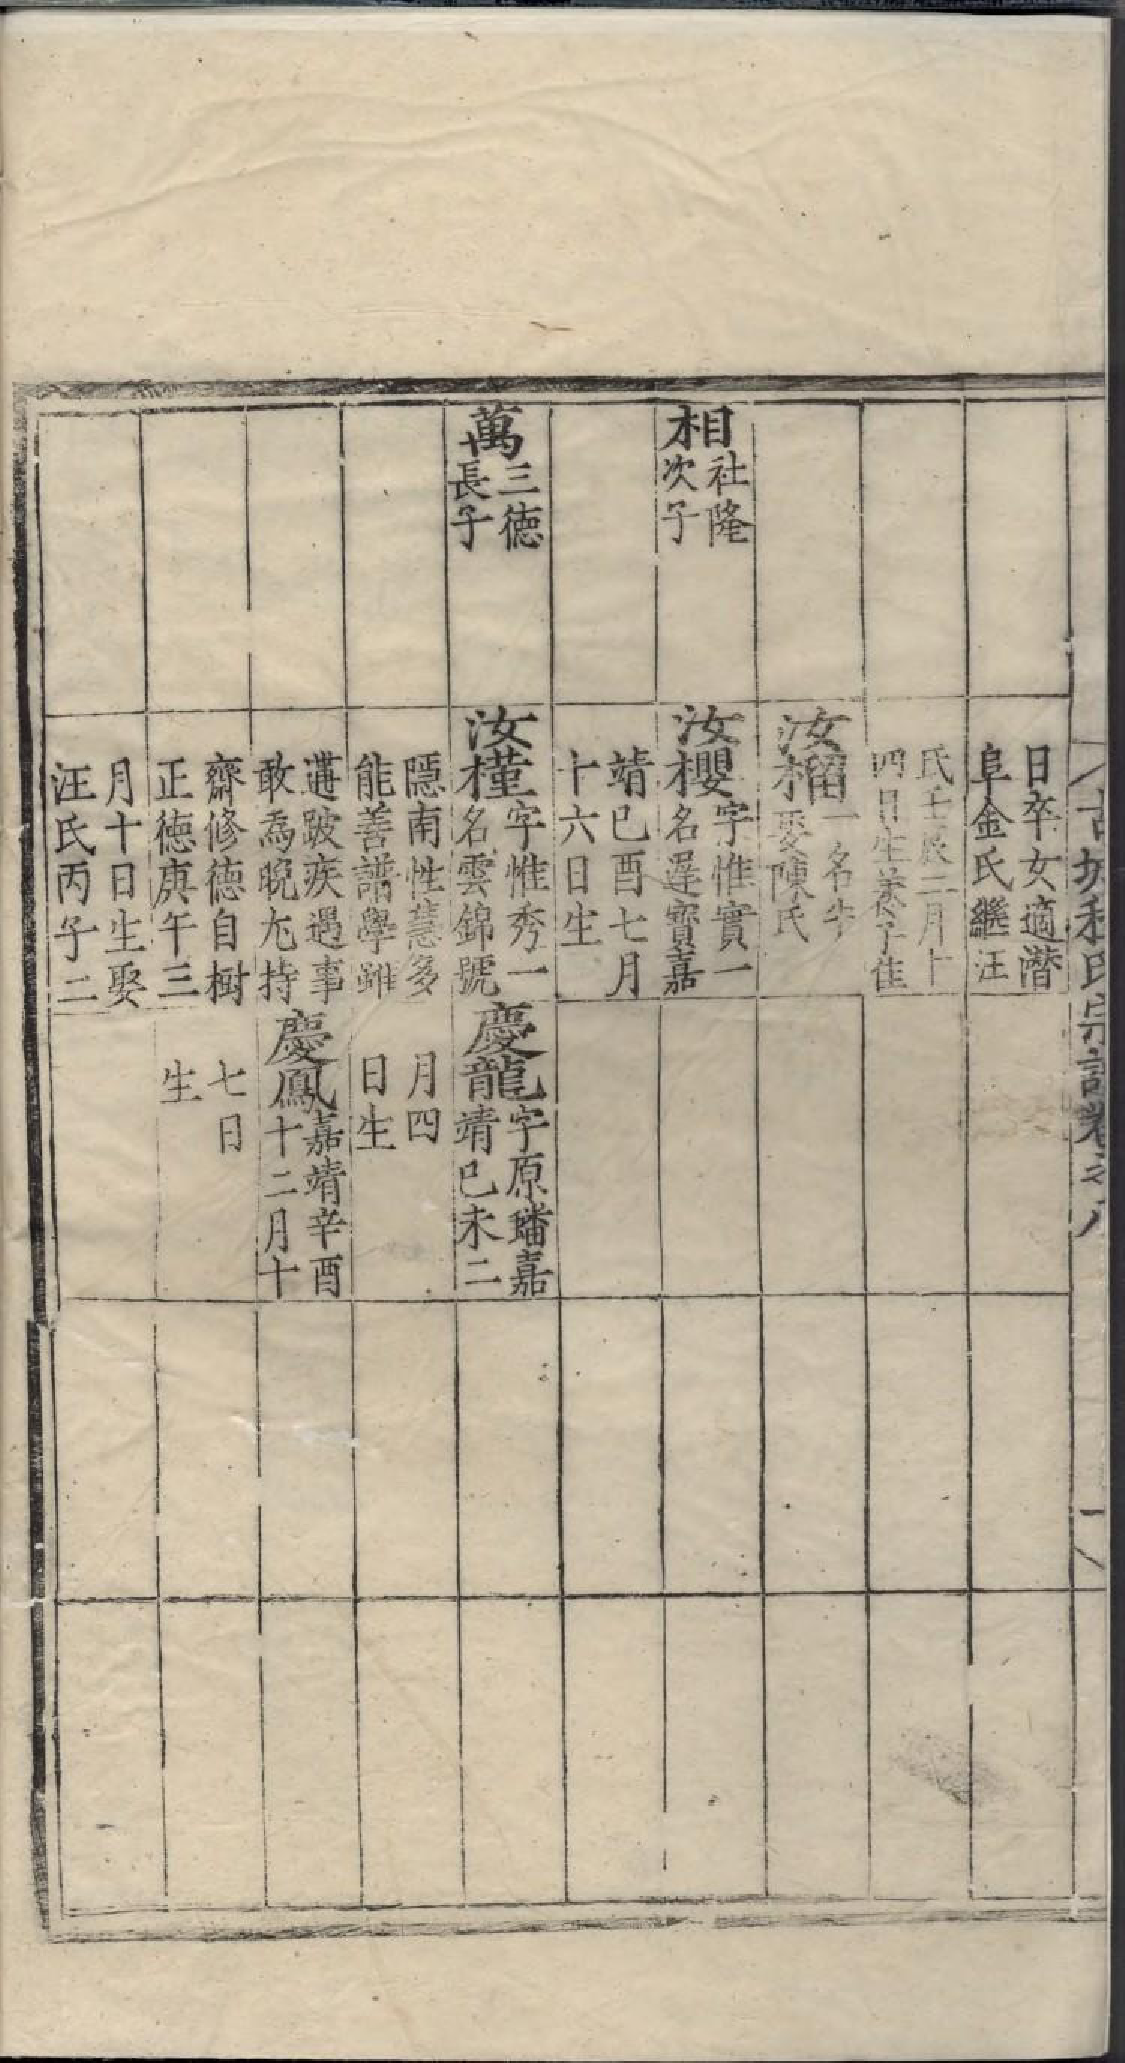 日卒女適潛
阜金氏繼汪
氏壬辰二月十
四日生養子佳
汝榴一名
娶陳氏
相社隆
次子
汝櫻字惟實一
名遲寶嘉
靖已酉七月
十六日生
萬三德
長子
汝槿字惟秀一
名雲錦號
隱南性慧多
能善譜學雖
遘跛疾遇事
敢爲晚尤持
齋修德自樹
正德庚午三
月十日生娶
汪氏丙子二
慶龍字原璠嘉
靖已未二
月四
日生
慶鳳嘉靖辛酉
十二月十
七日
生